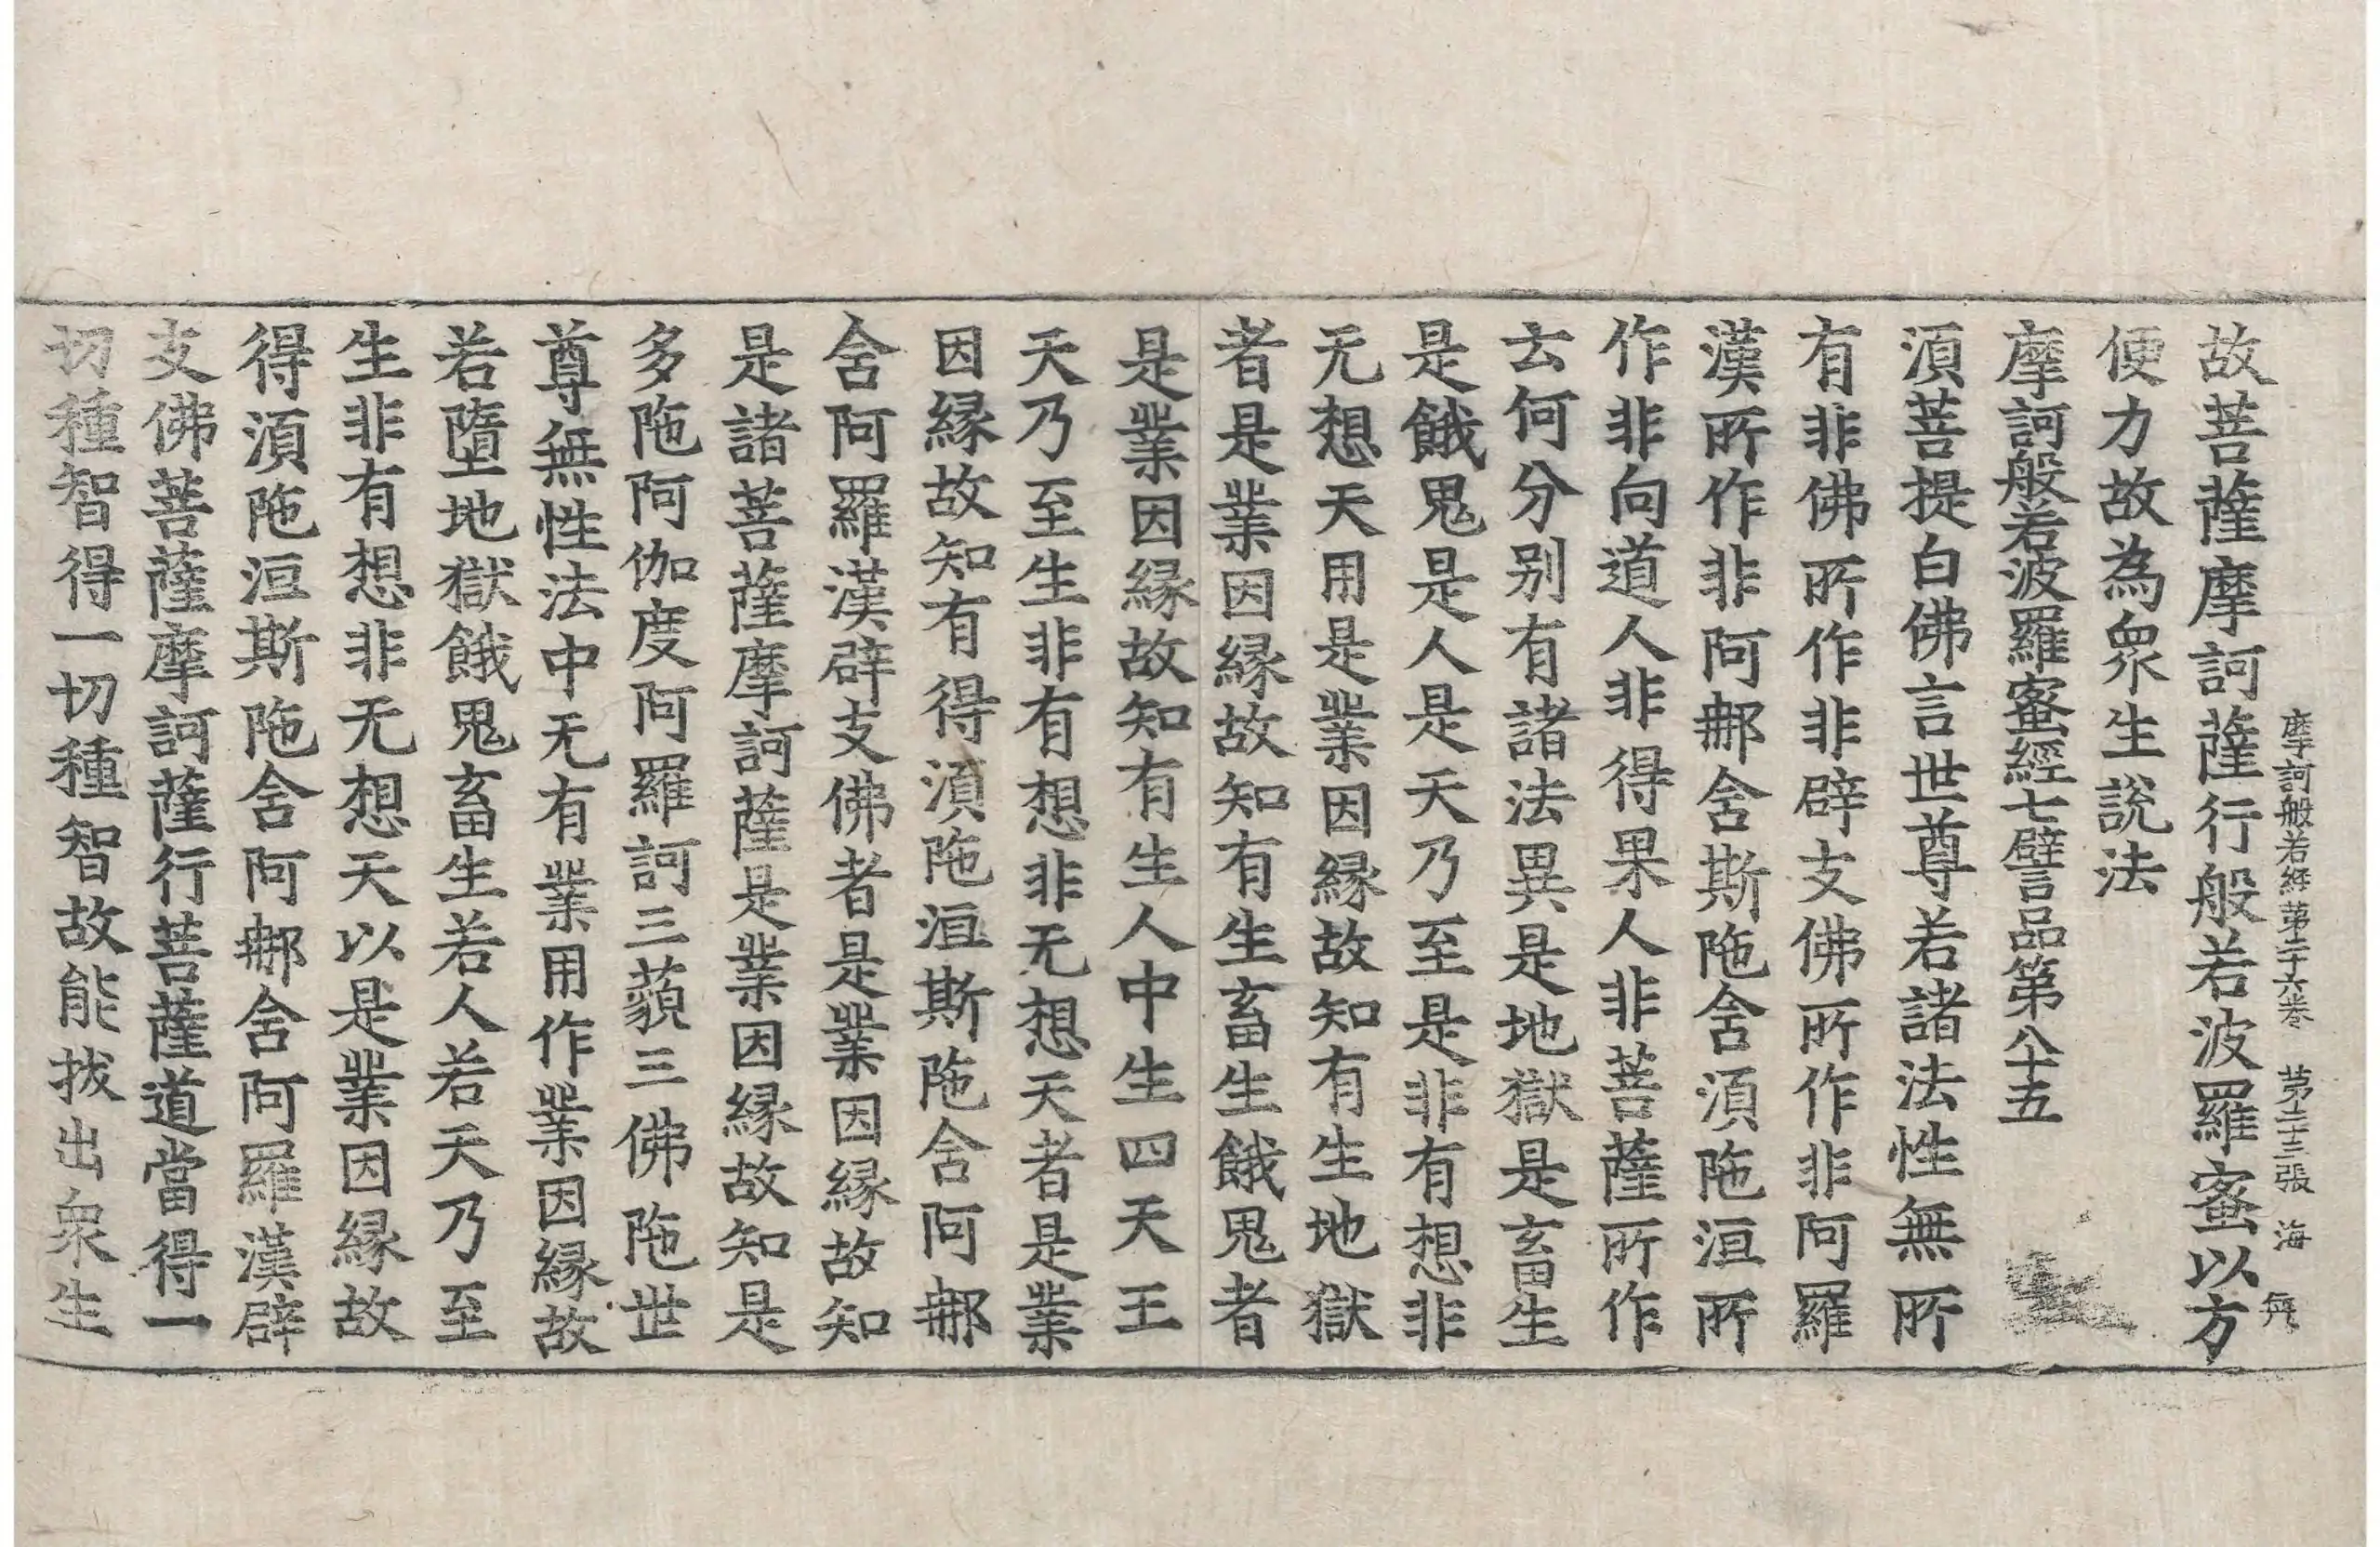 摩訶般若經第二十六卷　第二十三張　海
故菩薩摩訶薩行般若波羅蜜以方
便力故為衆生說法
摩訶般若波羅蜜經七譬品第八十五
湏菩提白佛言世尊若諸法性無所
有非佛所作非辟支佛所作非阿羅
漢所作非阿那舍斯陁舍湏陁洹所
作非向道人非得果人非菩薩所作
云何分別有諸法異是地獄是畜生
是餓鬼是人是天乃至是非有想非
无想天用是業因緣故知有生地獄
者是業因緣故知有生畜生餓鬼者
是業因緣故知有生人中生四天王
天乃至生非有想非无想天者是業
因緣故知有得湏陁洹斯陁含阿那
舍阿羅漢辟支佛者是業因緣故知
是諸菩薩摩訶薩是業因緣故知是
多陁阿伽度阿羅訶三藐三佛陁世
尊無性法中无有業用作業因緣故
若墮地獄餓鬼畜生若人若天乃至
生非有想非无想天以是業因緣故
得湏陁洹斯陁舍阿那舍阿羅漢辟
支佛菩薩摩訶薩行菩薩道當得一
切種智得一切種智故能拔出衆生